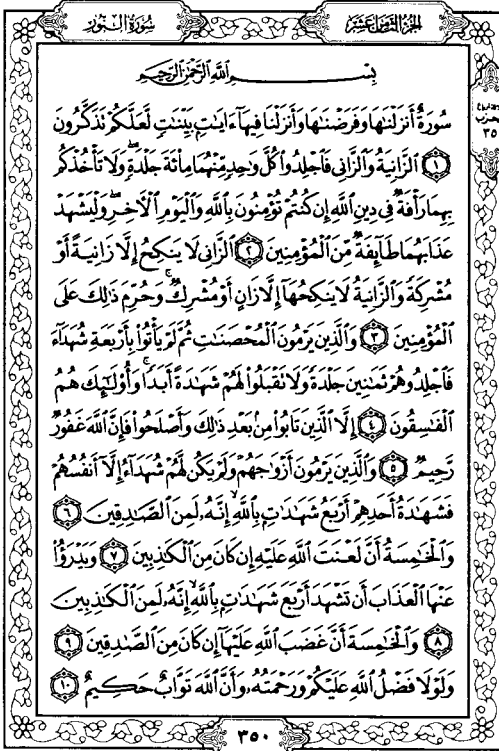 سُورَةُ النُّورِ
الجُزْءُ الثَّامِنَ عَشَرَ
حزب
٣٥
بِسْمِ ٱللَّهِ ٱلرَّحْمَٰنِ ٱلرَّحِيمِ
سُورَةٌ أَنزَلْنَٰهَا وَفَرَضْنَٰهَا وَأَنزَلْنَا فِيهَآ ءَايَٰتٍۭ بَيِّنَٰتٍ لَّعَلَّكُمْ تَذَكَّرُونَ
١ ٱلزَّانِيَةُ وَٱلزَّانِى فَٱجْلِدُوا۟ كُلَّ وَٰحِدٍ مِّنْهُمَا مِا۟ئَةَ جَلْدَةٍ ۖ وَلَا تَأْخُذْكُم
بِهِمَا رَأْفَةٌ فِى دِينِ ٱللَّهِ إِن كُنتُمْ تُؤْمِنُونَ بِٱللَّهِ وَٱلْيَوْمِ ٱلْءَاخِرِ ۖ وَلْيَشْهَدْ
عَذَابَهُمَا طَآئِفَةٌ مِّنَ ٱلْمُؤْمِنِينَ ٢ ٱلزَّانِى لَا يَنكِحُ إِلَّا زَانِيَةً أَوْ
مُشْرِكَةً وَٱلزَّانِيَةُ لَا يَنكِحُهَآ إِلَّا زَانٍ أَوْ مُشْرِكٌ ۚ وَحُرِّمَ ذَٰلِكَ عَلَى
ٱلْمُؤْمِنِينَ ٣ وَٱلَّذِينَ يَرْمُونَ ٱلْمُحْصَنَٰتِ ثُمَّ لَمْ يَأْتُوا۟ بِأَرْبَعَةِ شُهَدَآءَ
فَٱجْلِدُوهُمْ ثَمَٰنِينَ جَلْدَةً وَلَا تَقْبَلُوا۟ لَهُمْ شَهَٰدَةً أَبَدًا ۚ وَأُو۟لَٰٓئِكَ هُمُ
ٱلْفَٰسِقُونَ ٤ إِلَّا ٱلَّذِينَ تَابُوا۟ مِنۢ بَعْدِ ذَٰلِكَ وَأَصْلَحُوا۟ فَإِنَّ ٱللَّهَ غَفُورٌ
رَّحِيمٌ ٥ وَٱلَّذِينَ يَرْمُونَ أَزْوَٰجَهُمْ وَلَمْ يَكُن لَّهُمْ شُهَدَآءُ إِلَّآ أَنفُسُهُمْ
فَشَهَٰدَةُ أَحَدِهِمْ أَرْبَعُ شَهَٰدَٰتٍۭ بِٱللَّهِ ۙ إِنَّهُۥ لَمِنَ ٱلصَّٰدِقِينَ ٦
وَٱلْخَٰمِسَةُ أَنَّ لَعْنَتَ ٱللَّهِ عَلَيْهِ إِن كَانَ مِنَ ٱلْكَٰذِبِينَ ٧ وَيَدْرَؤُا۟
عَنْهَا ٱلْعَذَابَ أَن تَشْهَدَ أَرْبَعَ شَهَٰدَٰتٍۭ بِٱللَّهِ ۙ إِنَّهُۥ لَمِنَ ٱلْكَٰذِبِينَ
٨ وَٱلْخَٰمِسَةَ أَنَّ غَضَبَ ٱللَّهِ عَلَيْهَآ إِن كَانَ مِنَ ٱلصَّٰدِقِينَ ٩
وَلَوْلَا فَضْلُ ٱللَّهِ عَلَيْكُمْ وَرَحْمَتُهُۥ وَأَنَّ ٱللَّهَ تَوَّابٌ حَكِيمٌ ١٠
٣٥٠